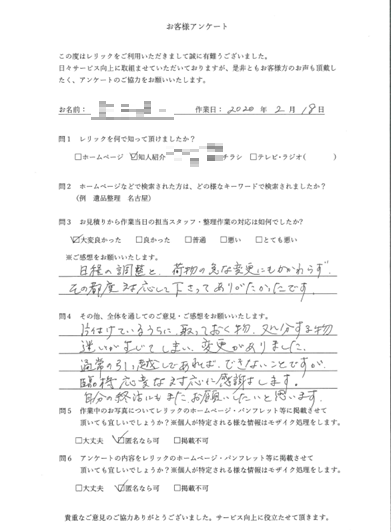 お客様アンケート
この度はレリックをご利用いただきまして誠に有難うございました。
日々サービス向上に取組ませていただいておりますが、是非ともお客様方のお声も頂戴し
たく、アンケートのご協力をお願いいたします。
お名前： 作業日：2020 年 2 月 19 日
問1 レリックを何で知って頂けましたか？
□ホームページ ☑知人紹介 チラシ □テレビ・ラジオ( )
問2 ホームページなどで検索された方は、どの様なキーワードで検索されましたか？
(例 遺品整理 名古屋)
問3 お見積りから作業当日の担当スタッフ・整理作業の対応は如何でしたか？
☑大変良かった □良かった □普通 □悪い □とても悪い
※ご感想をお願いいたします。
日程の調整と、荷物の急な変更にもかかわらず、
その都度対応して下さってありがたかったです。
問4 その他、全体を通してのご意見・ご感想をお願いいたします。
片付けているうちに、取っておく物、処分する物
迷いが生じてしまい、変更がありました。
通常の引っ越しであれば、できないことですが、
臨機応変な対応に感謝します。
自分の終活にもまた、お願いしたいと思います。
問5 作業中のお写真についてレリックのホームページ・パンフレット等に掲載させて
頂いても宜しいでしょうか？※個人が特定される様な情報はモザイク処理をします。
□大丈夫 ☑匿名なら可 □掲載不可
問6 アンケートの内容をレリックのホームページ・パンフレット等に掲載させて
頂いても宜しいでしょうか？※個人が特定される様な情報はモザイク処理をします。
□大丈夫 ☑匿名なら可 □掲載不可
貴重なご意見のご協力ありがとうございました。サービス向上に役立たせて頂きます。